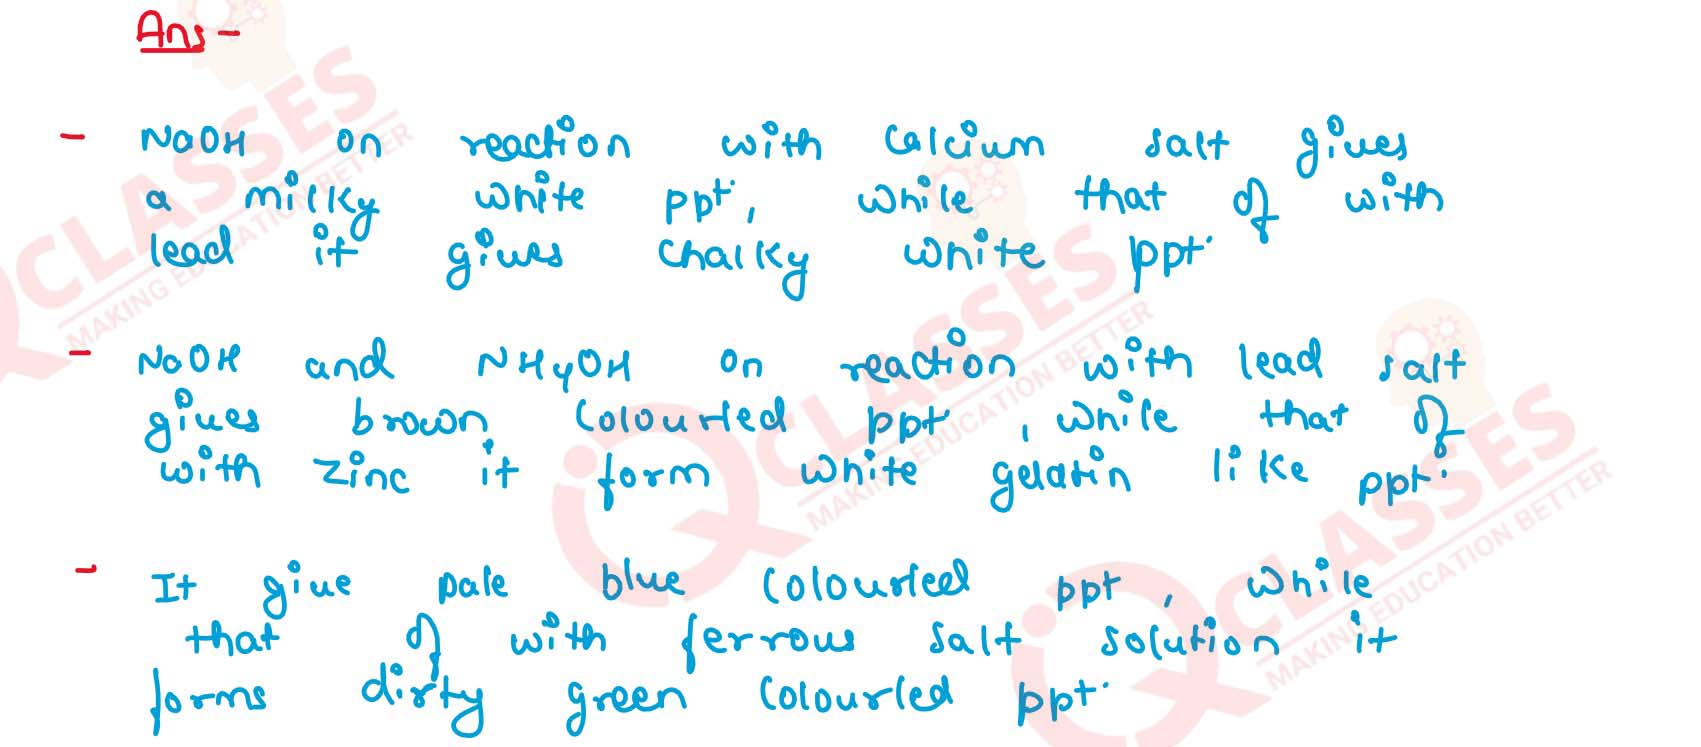 Ans -
- NaOH on reaction with calcium salt gives
a milky white ppt, while that of with
lead it gives chalky white ppt.
- NaOH and NH4OH on reaction with lead salt
gives brown colourled ppt, while that of
with zinc it form white gelatin like ppt.
- It give pale blue colourled ppt, while
that of with ferrous salt solution it
forms dirty green colourled ppt.
QCLASSES
MAKING EDUCATION BETTER
iQCLASSES
MAKING EDUCATION BETTER
iQCLASSES
MAKING EDUCATION BETTER